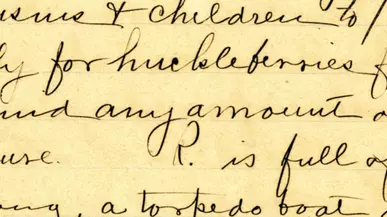 usins & children to
ly for huckleberries f
und any amount o
use. R. is full of
ong, a torpedo boat